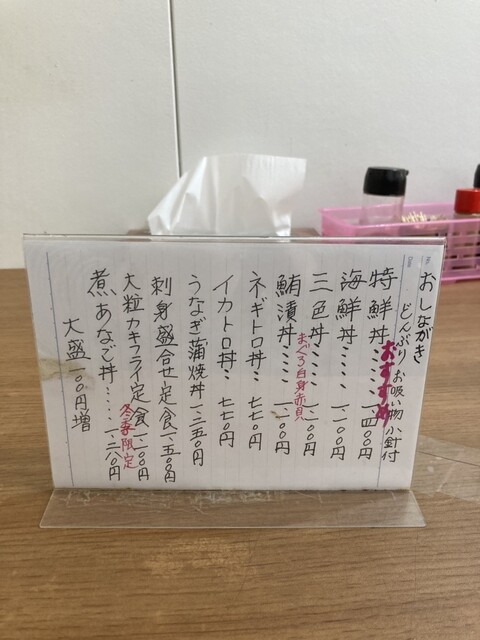 おしながき
どんぶり お吸い物 小針付
特鮮丼‥‥一、四〇〇円
おすすめ
海鮮丼‥‥一、一〇〇円
三色丼‥‥一、一〇〇円
まぐろ白身赤貝
鮪漬丼‥‥一、一〇〇円
ネギトロ丼‥七七〇円
イカトロ丼‥七七〇円
うなぎ蒲焼丼一、三五〇円
刺身盛合せ定食一、五〇〇円
大粒カキフライ定食一、一〇〇円
冬春限定
煮あなご丼‥‥一、二八〇円
大盛一〇〇円増